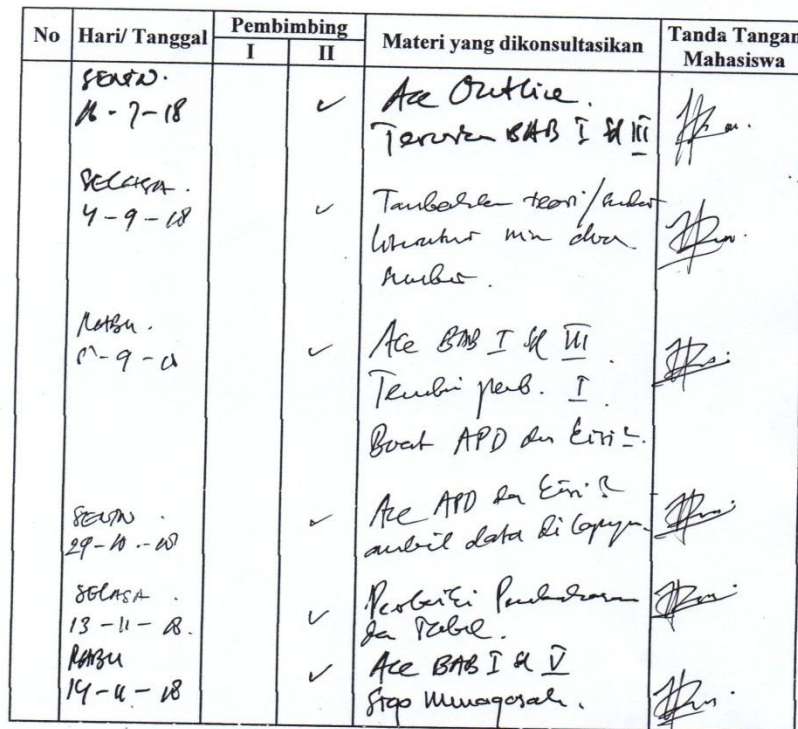 No Hari/ Tanggal Pembimbing Materi yang dikonsultasikan Tanda Tangan
I II Mahasiswa
SENIN.
16 - 7 - 18 ✓ Acc Outline.
Teruskan BAB I sd III
SELASA.
4 - 9 - 18 ✓ Tambahkan teori/
literatur min dua
sumber.
RABU.
- 9 - 18 ✓ Acc BAB I sd III
Temui pemb. I
Buat APD dan
SENIN ✓ Acc APD dan
29 - 10 - 18 ambil data di
SELASA.
13 - 11 - 18. ✓ Perbaiki Pembahasan
dan Tabel.
RABU ✓ Acc BAB I sd V
14 - 11 - 18 Siap Munaqasah.